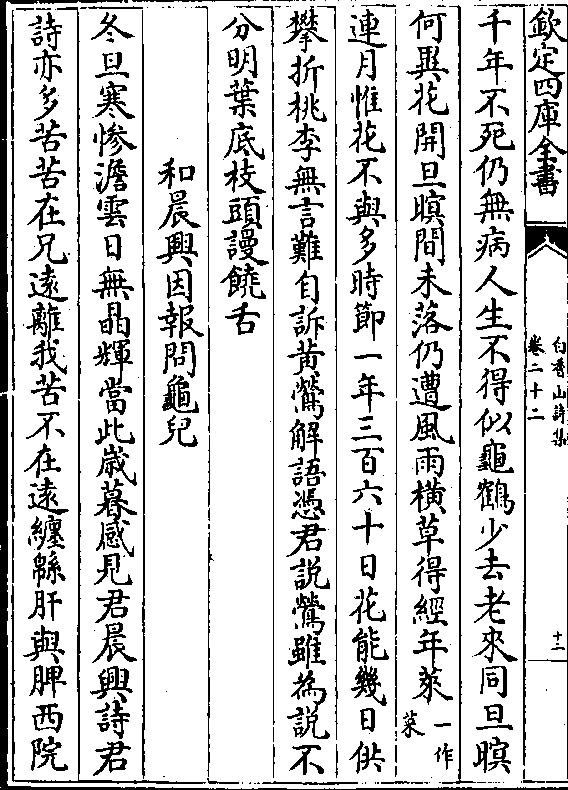 欽定四庫全書
白香山詩集
卷二十二
十二
千年不死仍無病人生不得似龜鶴少去老來同旦暝
何異花開旦暝間未落仍遭風雨橫草得經年菜一作菜
連月惟花不與多時節一年三百六十日花能幾日供
攀折桃李無言難自訴黃鶯解語憑君說鶯雖為說不
分明葉底枝頭謾饒舌
和晨興因報問龜兒
冬旦寒慘澹雲日無晶輝當此歲暮感見君晨興詩君
詩亦多苦苦在兄遠離我苦不在遠纏緜肝與脾西院